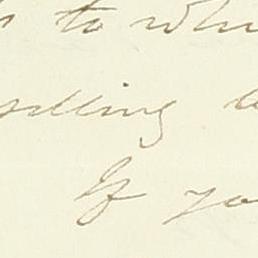 to whi
selling
If yo